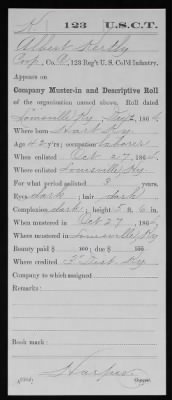 K | 123 | U.S.C.T.
Albert
Corp, Co. A, 123 Reg't U.S. Col'd Infantry.
Appears on
Company Muster-in and Descriptive Roll
of the organization named above. Roll dated
Louisville Ky, 186
Where born Ky
Age 42 y'rs; occupation Laborer
When enlisted Oct 27, 186
Where enlisted Louisville Ky
For what period enlisted 3 years.
Eyes dark; hair dark
Complexion dark; height 5 ft. 6 in.
When mustered in Oct 27, 186
Where mustered in Louisville Ky
Bounty paid $ 100; due $ 100
Where credited Dist Ky
Company to which assigned
Remarks:
Book mark:
Harper
Copyist.